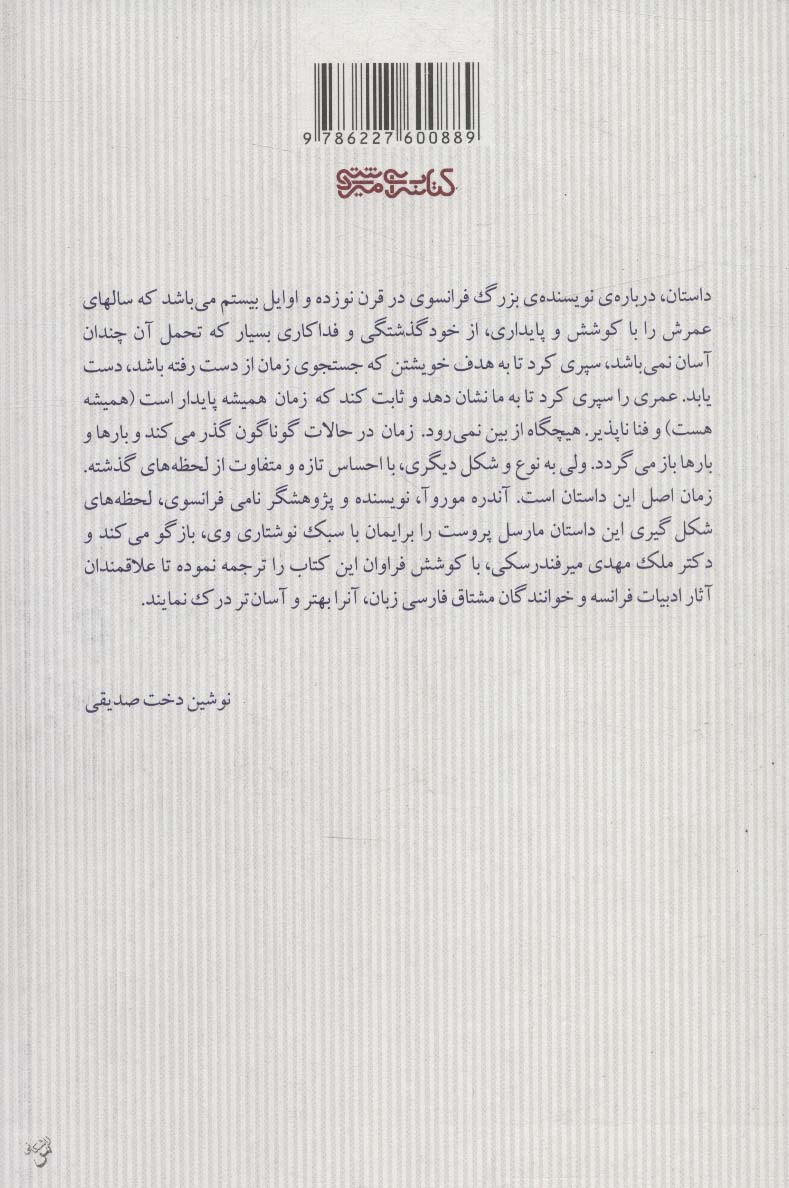 9 786227 600889
کتابسرای میردشتی
داستان، درباره‌ی نویسنده‌ی بزرگ فرانسوی در قرن نوزده و اوایل بیستم می‌باشد که سالهای
عمرش را با کوشش و پایداری، از خودگذشتگی و فداکاری بسیار که تحمل آن چندان
آسان نمی‌باشد، سپری کرد تا به هدف خویشتن که جستجوی زمان از دست رفته باشد، دست
یابد. عمری را سپری کرد تا به ما نشان دهد و ثابت کند که زمان همیشه پایدار است (همیشه
هست) و فنا ناپذیر. هیچگاه از بین نمی‌رود. زمان در حالات گوناگون گذر می‌کند و بارها و
بارها باز می‌گردد. ولی به نوع و شکل دیگری، با احساس تازه و متفاوت از لحظه‌های گذشته.
زمان اصل این داستان است. آندره موروآ، نویسنده و پژوهشگر نامی فرانسوی، لحظه‌های
شکل گیری این داستان مارسل پروست را برایمان با سبک نوشتاری وی، بازگو می‌کند و
دکتر ملک مهدی میرفندرسکی، با کوشش فراوان این کتاب را ترجمه نموده تا علاقمندان
آثار ادبیات فرانسه و خوانندگان مشتاق فارسی زبان، آنرا بهتر و آسان‌تر درک نمایند.
نوشین دخت صدیقی